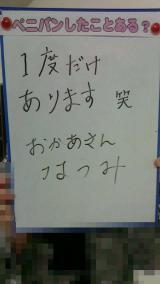 ペニバンしたことある?
1度だけ
あります 笑
おかあさん
はつみ